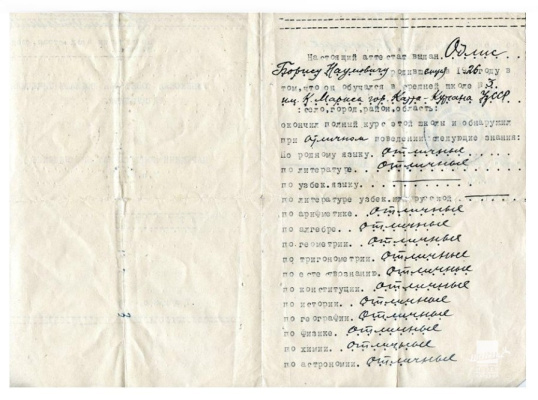 Настоящий аттестат выдан. Одлис
Борису Наумовичу родивш. в 1926 году в
том, что он обучался в средней школе №
им. К. Маркса гор. УзССР
:село, город, район, область:
окончил полный курс этой школы и обнаружил
при отличном поведении следующие знания:
по родному языку. отличные
по литературе. отличные
по узбек. языку.
по литературе узбек. или русской
по арифметике. отличные
по алгебре. отличные
по геометрии. отличные
по тригонометрии. отличные
по естествознанию. отличные
по конституции. отличные
по истории. отличные
по географии. отличные
по физике. отличные
по химии. отличные
по астрономии. отличные